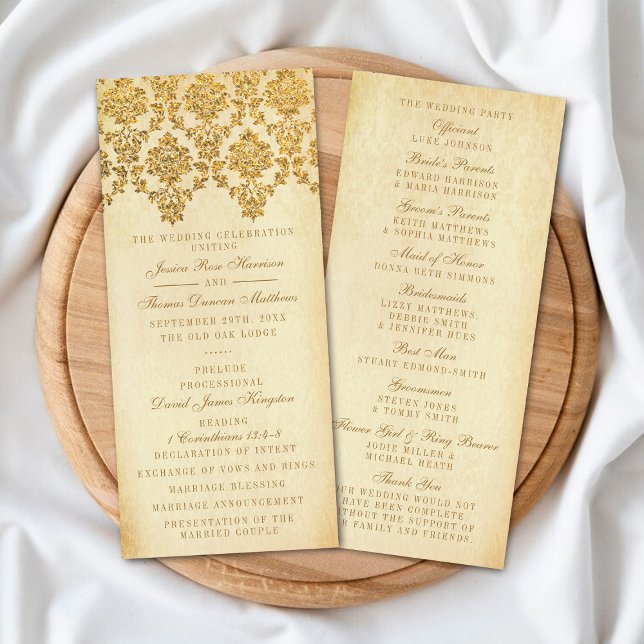 THE WEDDING CELEBRATION
UNITING
Jessica Rose Harrison
AND
Thomas Duncan Matthews
SEPTEMBER 29TH, 20XX
THE OLD OAK LODGE
PRELUDE
PROGESSIONAL
David James Kingston
READING
1 Corinthians 13:4-8
DECLARATION OF INTENT
EXCHANGE OF VOWS AND RINGS
MARRIAGE BLESSING
MARRIAGE ANNOUNCEMENT
PRESENTATION OF THE
MARRIED COUPLE
THE WEDDING PARTY
Officiant
LUKE JOHNSON
Bride's Parents
EDWARD HARRISON
& MARIA HARRISON
Groom's Parents
KEITH MATTHEWS
& SOPHIA MATTHEWS
Maid of Honor
DONNA BETH SIMMONS
Bridesmaids
LIZZY MATTHEWS,
DEBBIE SMITH
& JENNIFER HUES
Best Man
STUART EDMOND-SMITH
Groomsmen
STEVEN JONES
& TOMMY SMITH
Flower Girl & Ring Bearer
JODIE MILLER &
MICHAEL HEATH
Thank You
OUR WEDDING WOULD NOT
HAVE BEEN COMPLETE
WITHOUT THE SUPPORT OF
OUR FAMILY AND FRIENDS.